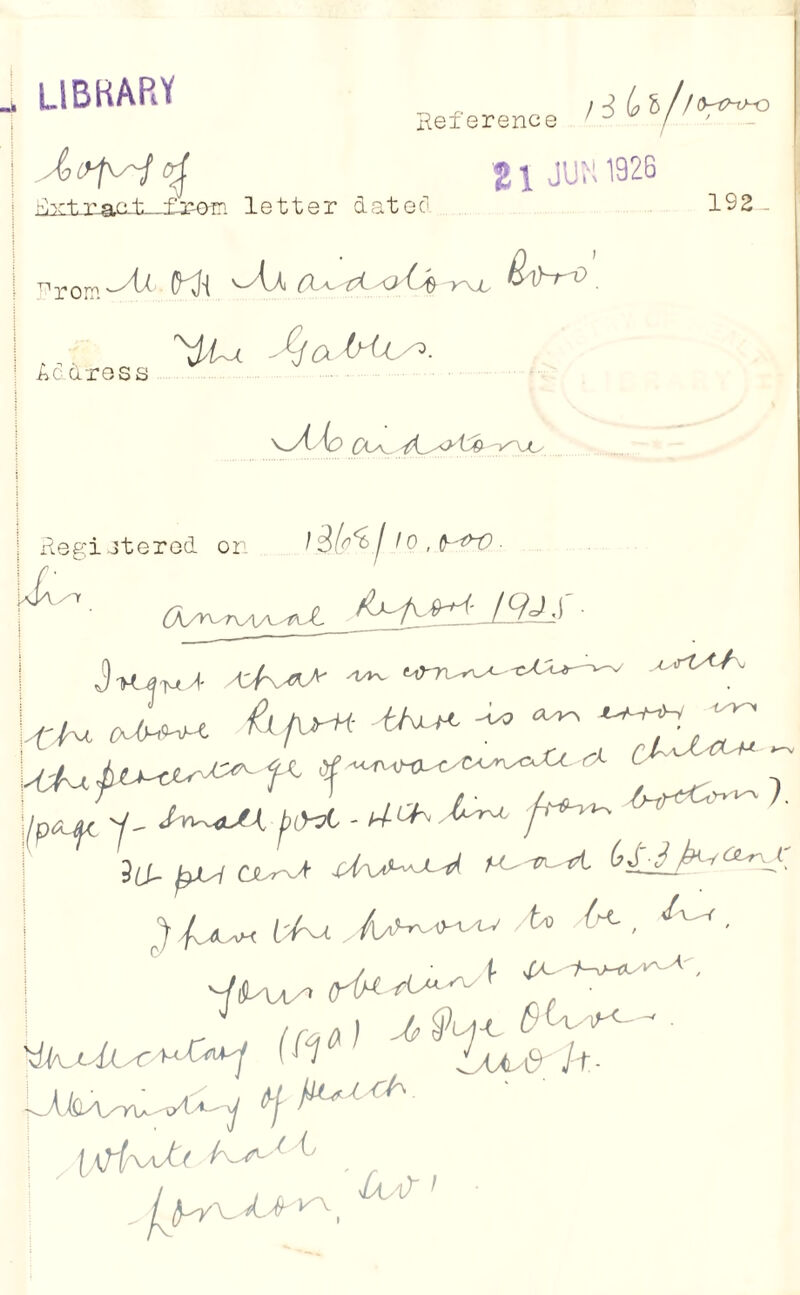 LIBRARY
Reference 1368/10,000
Copy of
21 JUN 1926
Extract from letter dated 192
From M OH Maidstone Boro'.
Address The Gables.
MINISTRY OF HEALTH
LIBRARY
Maidstone
Registered on 1368/10,000.
Sir.
Annual Report 1925.
I regret that in connection with
the above Report there is an error in
the percentage of unvaccinated children
(page 7 - Small pox - 4th line from bottom).
34 per cent should read 65.3 per cent
I have the honour to be, Sir,
Your obedient servant,
The Secretary (Sgd) C Pye Oliver.
MOH.
Ministry of Health
Whitehall
London, SW1